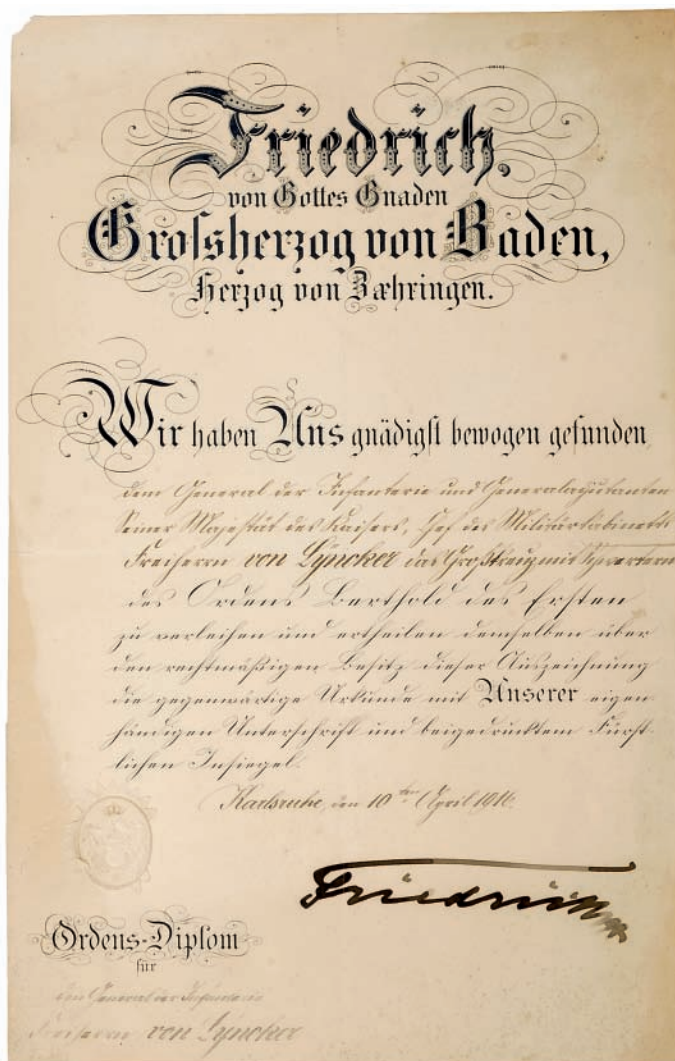 Friedrich,
von Gottes Gnaden
Grossherzog von Baden,
Herzog von Zæhringen.
Wir haben Uns gnädigst bewogen gefunden
dem General der Infanterie und Generaladjutanten
Seiner Majestät des Kaisers, Chef des Militärkabinetts
Freiherrn von Lyncker das Großkreuz mit Schwertern
des Ordens Berthold des Ersten
zu verleihen und ertheilen demselben über
den rechtmäßigen Besitz dieser Auszeichnung
die gegenwärtige Urkunde mit Unserer eigen
händigen Unterschrift und beigedrucktem Fürst-
lichen Insiegel.
Karlsruhe, den 10ten April 1916.
Friedrich
Ordens-Diplom
für
den General der Infanterie
Freiherrn von Lyncker